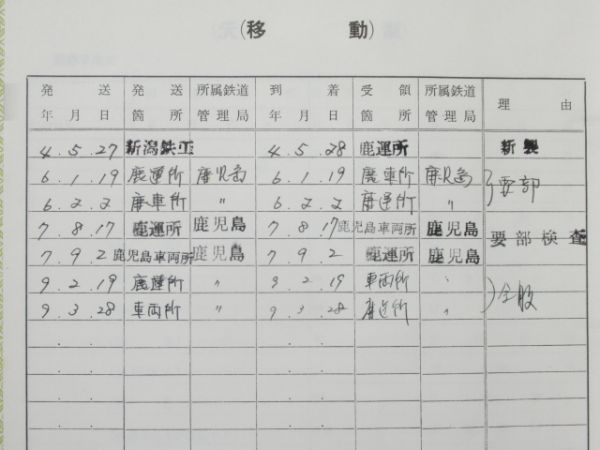 (移 動)
発送年月日 発送箇所 所属鉄道管理局 到着年月日 受領箇所 所属鉄道管理局 理由
4.5.27 新潟鉄工 4.5.28 鹿運所 新製
6.1.19 鹿運所 鹿児島 6.1.19 鹿車所 鹿児島 要部
6.2.2 鹿車所 〃 6.2.2 鹿運所 〃
7.8.17 鹿運所 鹿児島 7.8.17 鹿児島車両所 鹿児島 要部検査
7.9.2 鹿児島車両所 鹿児島 7.9.2 鹿運所 鹿児島
9.2.19 鹿運所 〃 9.2.19 車両所 〃 全般
9.3.28 車両所 〃 9.3.28 鹿運所 〃